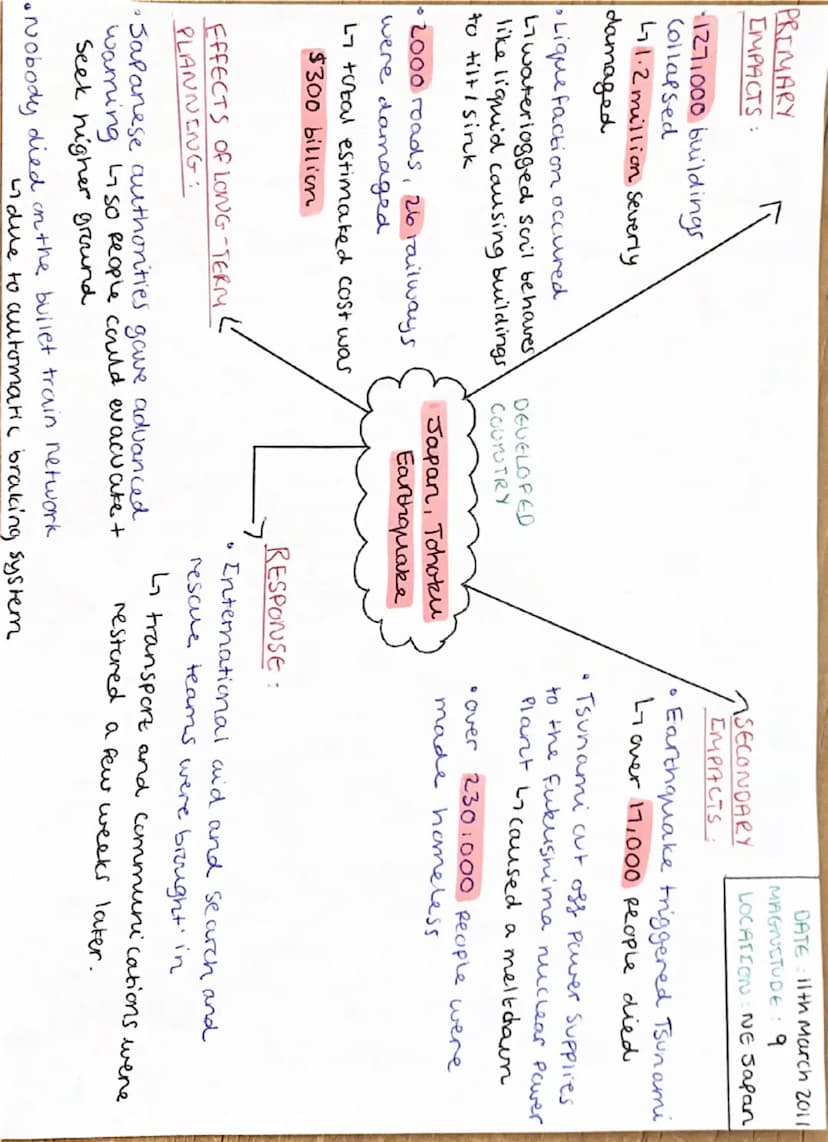 PRIMARY
IMPACTS:
• 127,000 buildings
collapsed
↳ 1.2 million severly
damaged
• Liquefaction occured
↳ waterlogged soil behaves
like liquid causing buildings
to tilt/sink
• 2000 roads, 26 railways
were damaged
↳ total estimated cost was
$300 billion
DATE: 11th March 2011
MAGNITUDE: 9
LOCATION: NE Japan
SECONDARY
IMPACTS:
• Earthquake triggered Tsunami
↳ over 17,000 people died
• Tsunami cut off power supplies
to the Fukushima nuclear power
plant ↳ caused a meltdown
• over 230,000 people were
made homeless
DEVELOPED
COUNTRY
Japan, Tohoku
Earthquake
EFFECTS OF LONG-TERM
PLANNING:
• Japanese authorities gave advanced
warning ↳ so people could evacuate +
seek higher ground
• Nobody died on the bullet train network
↳ due to automatic braking system
RESPONSE:
• International aid and search and
rescue teams were brought in
↳ transport and communications were
restored a few weeks later.